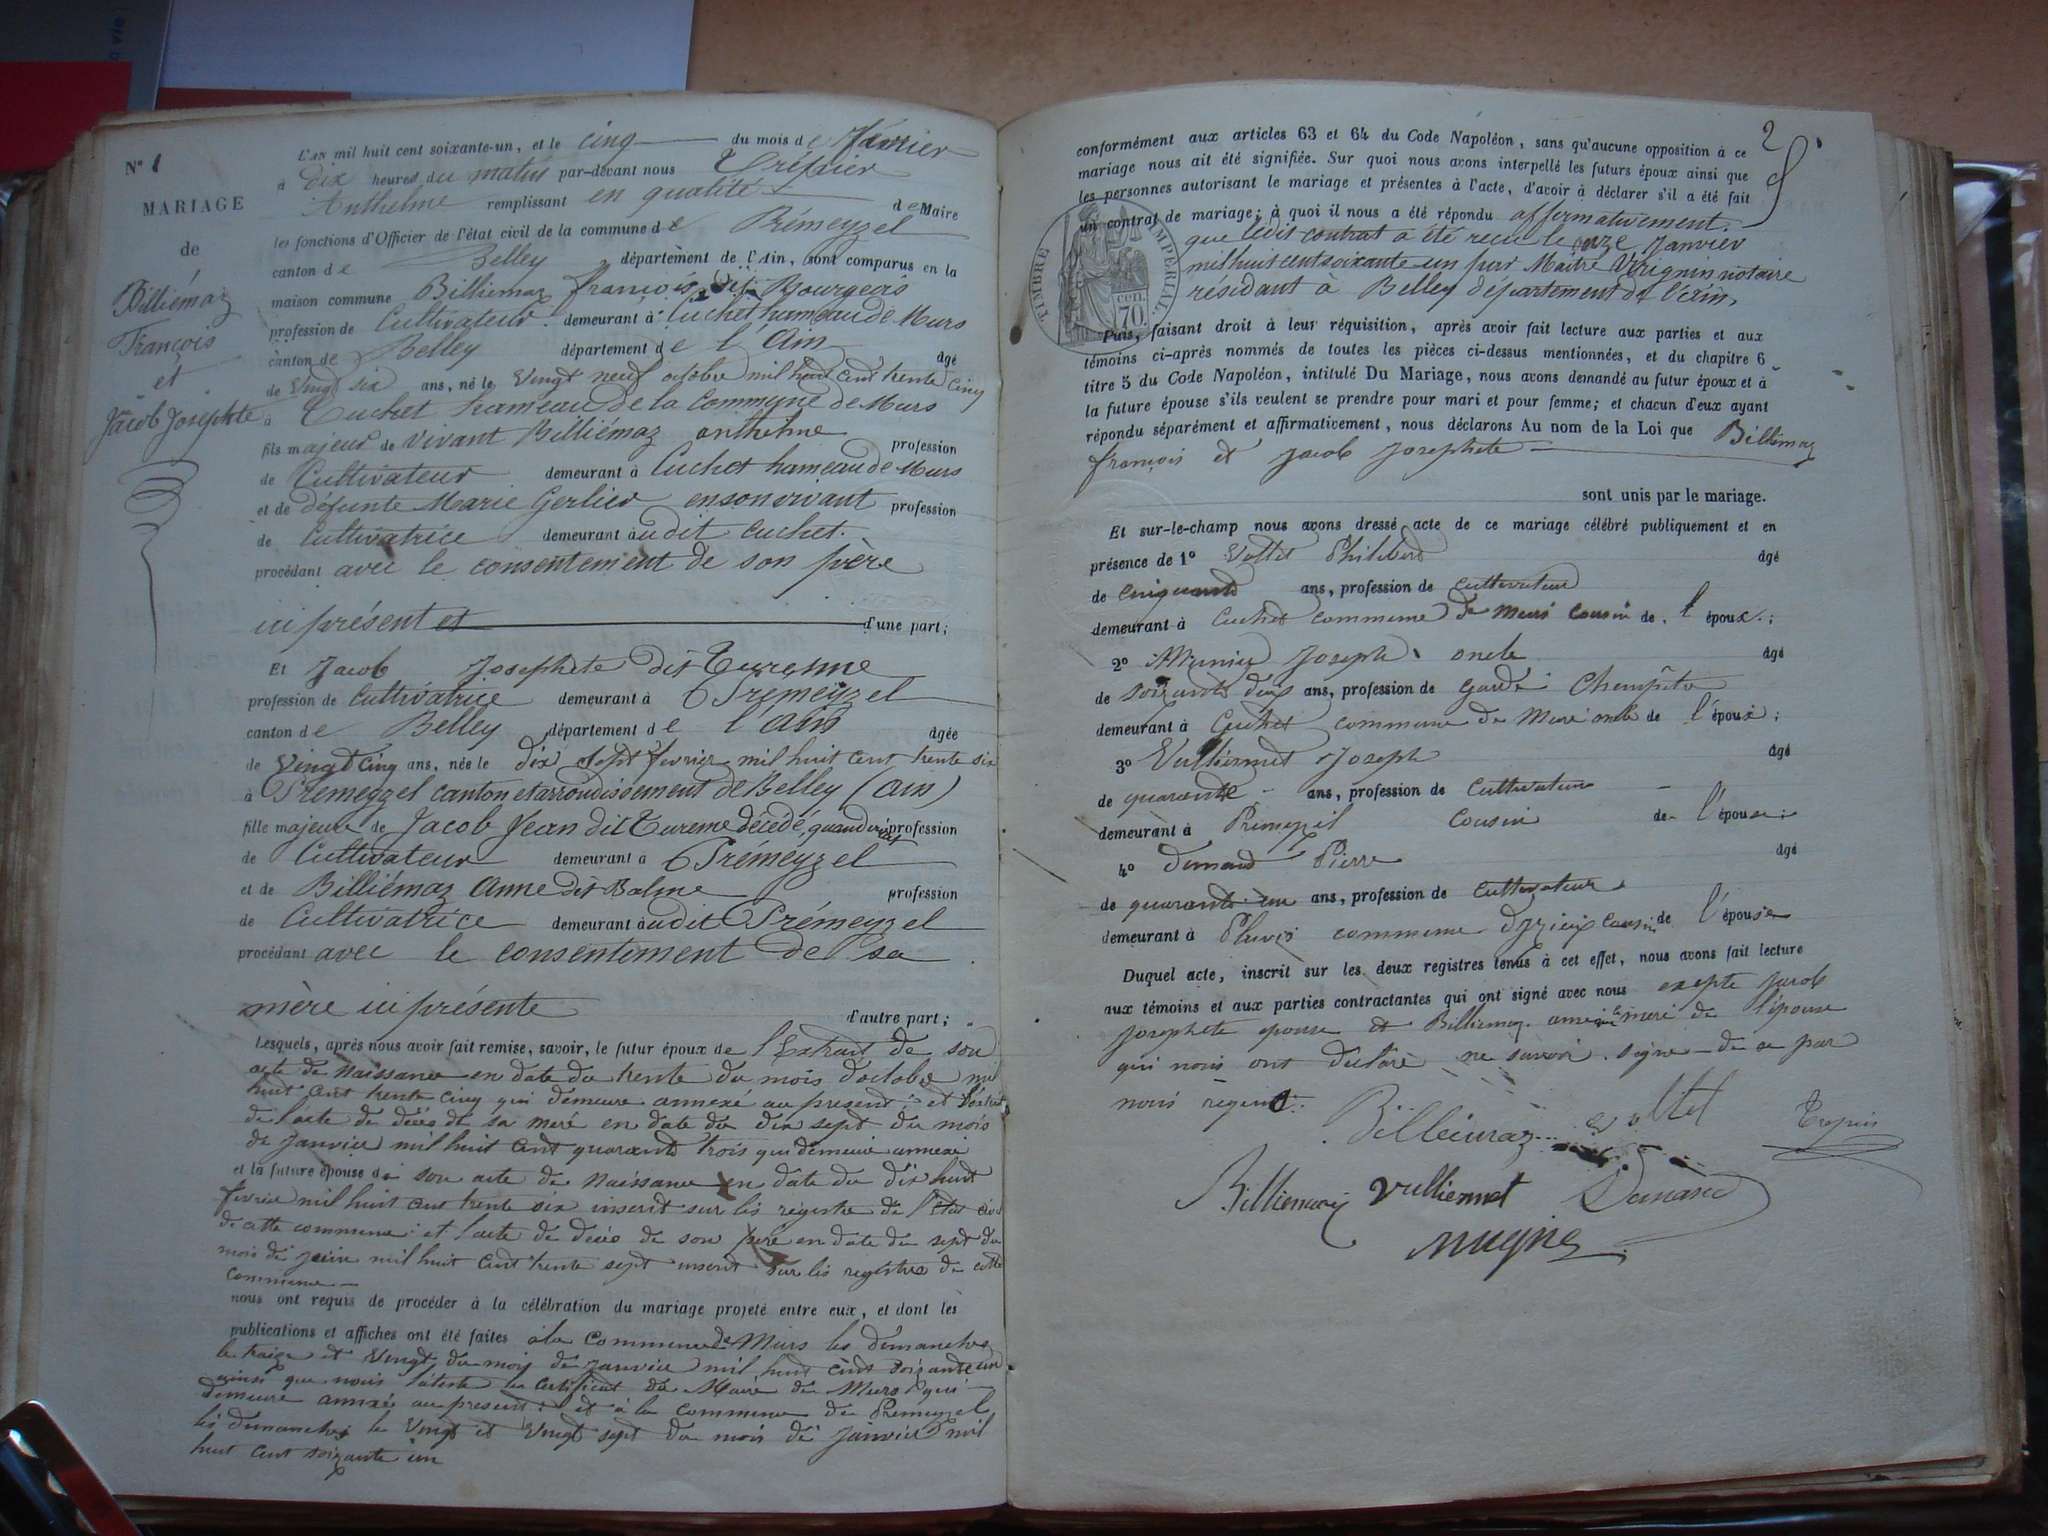 N° 1
MARIAGE
de
Billiémaz
François
et
Jacob Josephte
L'AN mil huit cent soixante-un, et le cinq du mois de février
à Dix heures du matin par-devant nous Tréfier
Anthelme remplissant en qualité de Maire
les fonctions d'Officier de l'état civil de la commune de Prémeyzel
canton de Belley département de l'Ain, sont comparus en la
maison commune Billiemaz françois dit Bourgeois
profession de Cultivateur demeurant à Cuchet hameau de Murs
canton de Belley département de l'Ain âgé
de Vingt six ans, né le Vingt neuf octobre mil huit cent trente cinq
à Cuchet hameau de la Commune de Murs
fils majeur de vivant Billiémaz anthelme profession
de Cultivateur demeurant à Cuchet hameau de Murs
et de défunte Marie Gerlier en son vivant profession
de Cultivatrice demeurant audit Cuchet.
procédant avec le consentement de son père
ici présent et d'une part;
Et Jacob Josephete dit Turenne
profession de Cultivatrice demeurant à Prémeyzel
canton de Belley département de l'Ain âgée
de Vingt cinq ans, née le dix sept fevrier mil huit cent trente six
à Prémeyzel canton et arroudissement de Belley (Ain)
fille majeure de Jacob Jean dit Turenne décédé, quand vivait profession
de Cultivateur demeurant à Prémeyzel
et de Billiémaz Anne dit Balme profession
de Cultivatrice demeurant audit Prémeyzel
procédant avec le consentement de sa
mère ici présente d'autre part;
Lesquels, après nous avoir fait remise, savoir, le futur époux de l'Extrait de son
acte de naissance en date du trente du mois d'octobre mil
huit cent trente cinq qui demeure annexé au present: et l'extrait
de l'acte de décés de sa meré en date du dix sept du mois
de janvier mil huit cent quarante trois qui demeure annexé
et la future épouse de son acte de naissance en date du dix huit
fevrier mil huit cent trente six inscrit sur lés registre de l'état civil
de cette commune: et l'acte de décés de son père en date du sept du
mois de juin mil huit cent trente sept inscrit sur lés registres de cette
commune
nous ont requis de procéder à la célébration du mariage projeté entre eux, et dont les
publications et affiches ont été faites à la commune de Murs les dimanches
le treize et Vingt du mois de janvier mil huit cent soixante un
ainsi que nous l'atteste le certificat du Maire de Murs qui
demeure annexé au present: et à la commune de Prémeyzel
lés dimanches le Vingt et Vingt sept du mois de janvier mil
huit cent soixante un
2
conformément aux articles 63 et 64 du Code Napoléon, sans qu'aucune opposition à ce
mariage nous ait été signifiée. Sur quoi nous avons interpellé les futurs époux ainsi que
les personnes autorisant le mariage et présentes à l'acte, d'avoir à déclarer s'il a été fait
un contrat de mariage; à quoi il nous a été répondu affirmativement.
que ledit contrat a été recu le onze Janvier
mil huit cent soixante un par Maitre Virignin notaire
résidant à Belley département de l'Ain,
TIMBRE IMPERIAL
70 cen.
Puis, faisant droit à leur réquisition, après avoir fait lecture aux parties et aux
témoins ci-après nommés de toutes les pièces ci-dessus mentionnées, et du chapitre 6
titre 5 du Code Napoléon, intitulé Du Mariage, nous avons demandé au futur époux et à
la future épouse s'ils veulent se prendre pour mari et pour femme; et chacun d'eux ayant
répondu séparément et affirmativement, nous déclarons Au nom de la Loi que Billiémaz
françois et Jacob Josephete
sont unis par le mariage.
Et sur-le-champ nous avons dressé acte de ce mariage célébré publiquement et en
présence de 1° Vettet Philibert âgé
de cinquante ans, profession de cultivateur
demeurant à Cuchet commune de Murs cousin de l'époux;
2° Joseph oncle âgé
de soixante deux ans, profession de Garde Champêtre
demeurant à Cuchet commune de Murs oncle de l'époux;
3° Vulliermet Joseph âgé
de quarante ans, profession de Cultivateur
demeurant à Prémeyzel Cousin de l'épouse;
4° Dunand Pierre âgé
de quarante un ans, profession de Cultivateur
demeurant à Pluvis commune d'yzieux cousin de l'épouse
Duquel acte, inscrit sur les deux registres tenus à cet effet, nous avons fait lecture
aux témoins et aux parties contractantes qui ont signé avec nous exepte Jacob
Josephete epouse et Billiemaz anne meré de l'épouse
qui nous ont déclaré ne savoir signe de ce par
nous requis.
Billiemaz Vottet
Billiemaz Vulliermet Dunand